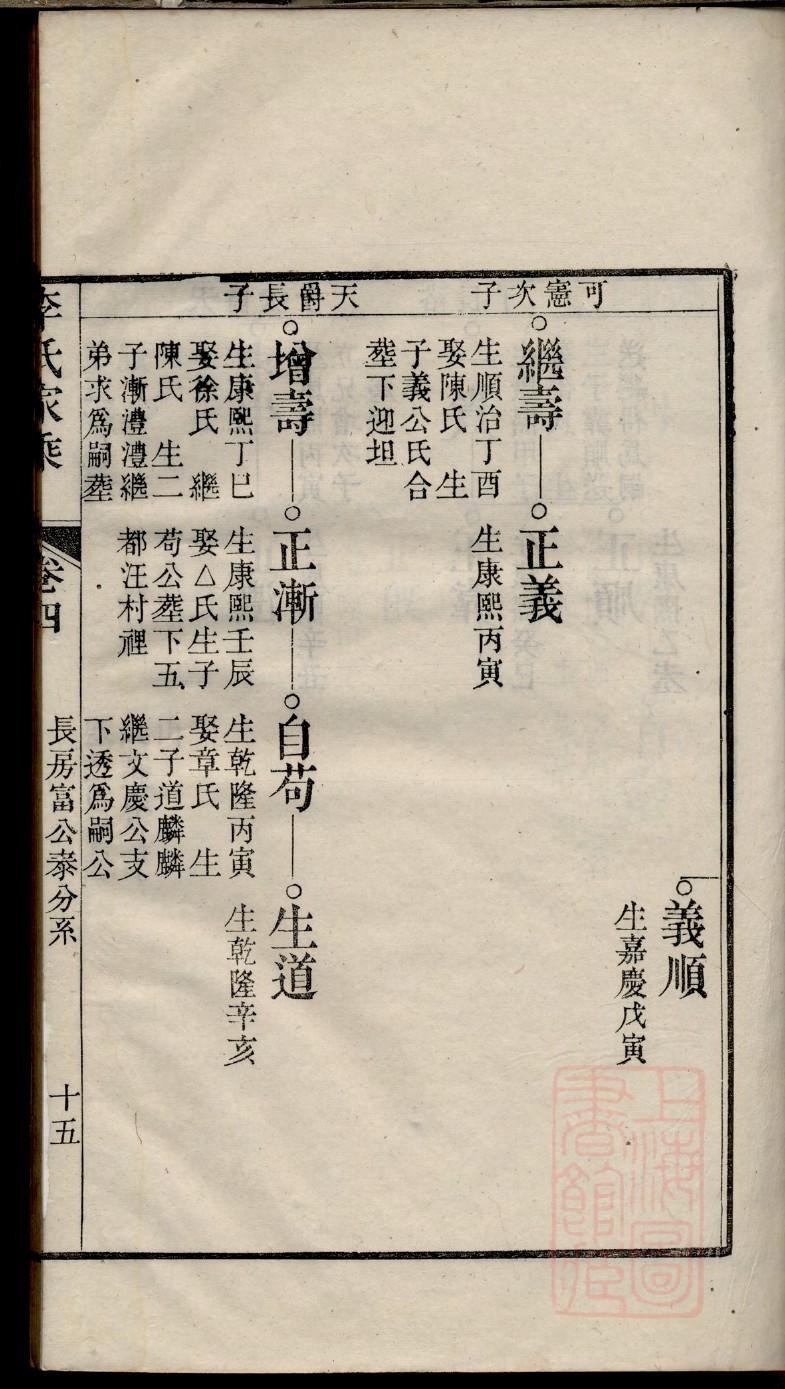 義順
生嘉慶戊寅
可憲次子
繼壽
生順治丁酉
娶陳氏 生
子義公氏合
塟下迎坦
正義
生康熙丙寅
天爵長子
增壽
生康熙丁巳
娶徐氏 繼
陳氏 生二
子漸澧澧繼
弟求爲嗣塟
正漸
生康熙壬辰
娶△氏生子
苟公塟下五
都汪村裡
自苟
生乾隆丙寅
娶章氏 生
二子道麟麟
繼文慶公支
下透爲嗣公
生道
生乾隆辛亥
李氏家乘
卷四
長房富公泰分系
十五
上海圖
書館藏